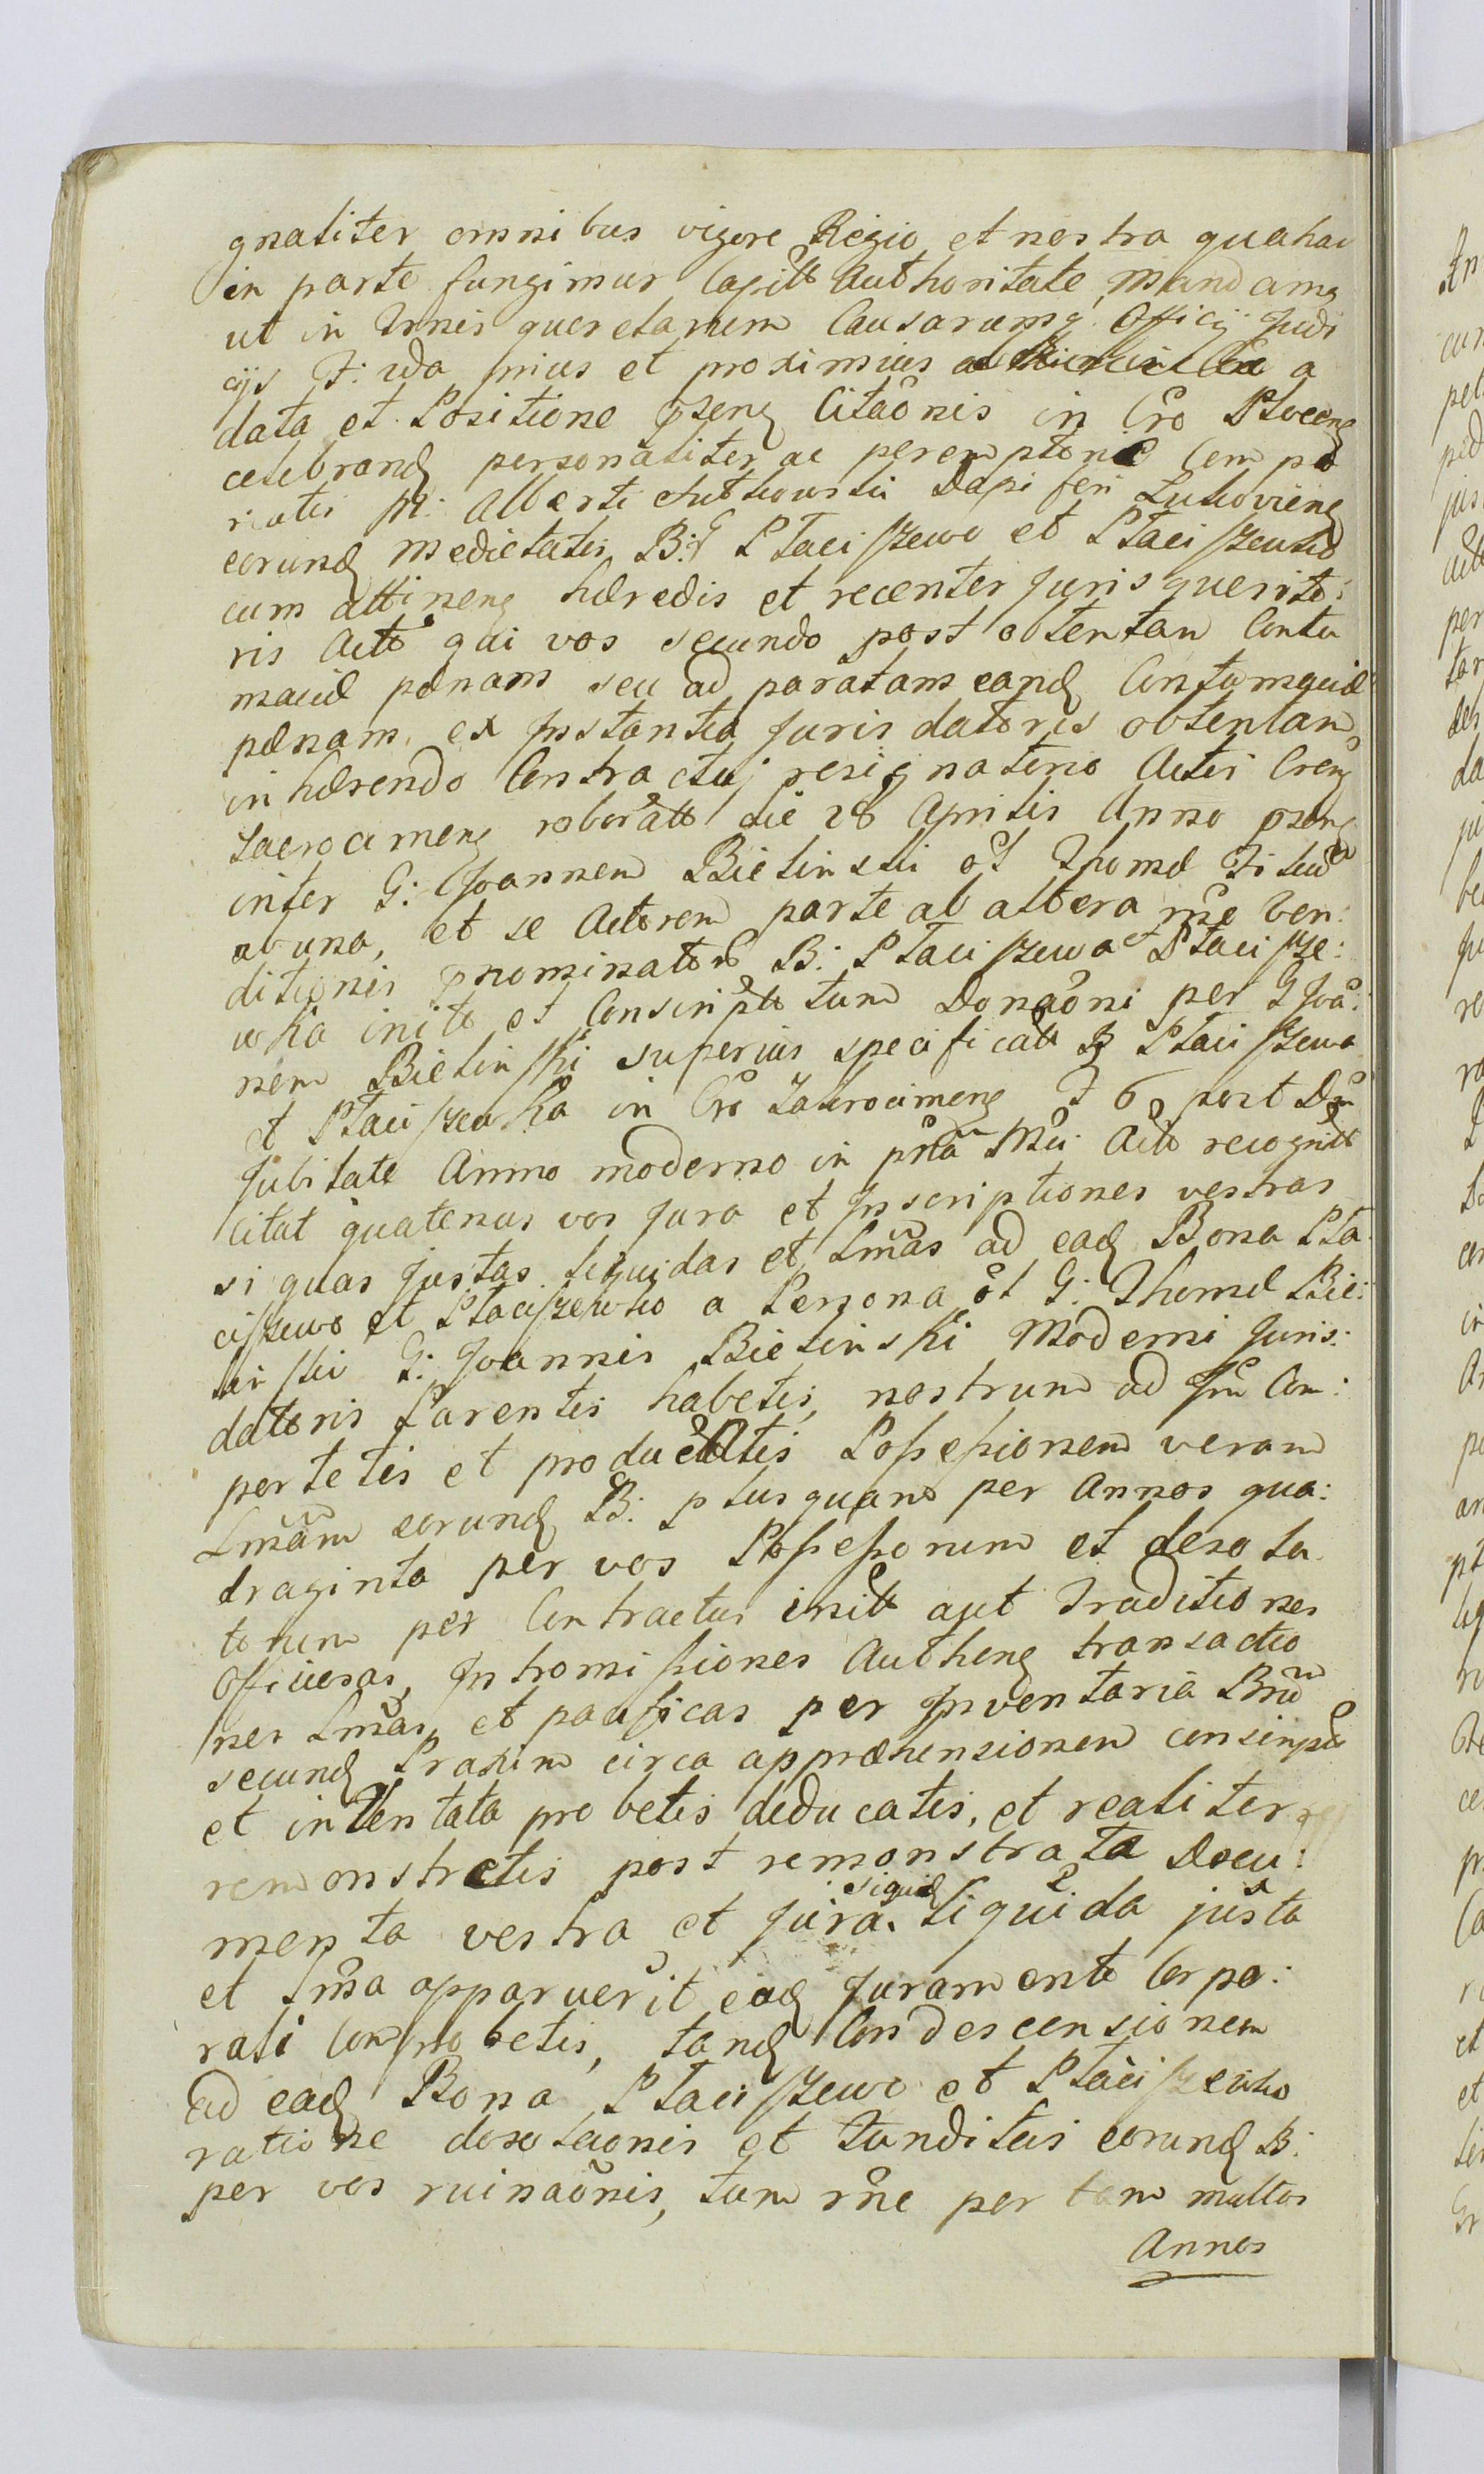 gnaliter omnibus vigore Regio et nostra qua hac
in parte fungimur Capitt Authoritate mandamg
ut in Trnis querelarum Causarumq Officij Judi
cijs F: 2da prius et proximius a
data et Positione psenq Citaonis in Cro Plocenq
celebrandq personaliter ac peremptorie Compa
reatis M: Alberti Dapiferi Lukovienq
eorundq medietatis B: Płaciszewo et Płaciszewko
cum attinenq hæredis et recenter Juris quesito:
ris Acto qui vos secundo post obtentam Contu
maciæ pænam seu ad paratam eandq Contumaciæ
pænam ex Instantia Juris datoris obtentam
inhærendo Contractuj resignatorio Actis Crenq
Zacrocimenq roboratt die 28 Aprilis Anno psenq
inter G: Joannem Bielinski ol Thomæ Filium
ab una, et se Actorem parte ab altera rne Ven:
ditionis pnominator B: Płaciszewo et Płacisze:
wko inito et Conscripto tum Donaoni per G Joa:
nem Bielinski superius specificatt B Płaciszewo
et Płaciszewko in Cro Zakrocimenq F 6 post Dm
Jubilate Anno moderno in pntia Mci Acto recognitt
Citat quatenus vos Jura et Inscriptiones vestras
si quas Justas liquidas et Lmas ad eadq Bona Pła
ciszewo et Płaciszewko a Persona ol G: Thomæ Bie:
linski G: Joannis Bielinski Moderni Juris:
datoris Parentis habetis, nostrum ad Jm Com:
portetis et producatis Possessionem veram
Lmam eorundq B: plusquam per Annos qua:
draginta per vos Possessorum et desola
torum per Contractus initt aut Traditiones
Officiosas, Intromissiones Authenq transactio
nes Lmas et pacificas per Inventaria Brum
secundq Praxim circa appræhensionem conscripta
et intentata probetis deducatis, et realiter
remonstretis post remonstrata Docu:
menta vestra et Jura siquidq liquida justa
et Lma apparuerit eadq Juramento Corpo:
rali Comprobetis, tandq Condescensionem
ad eadq Bona Płaciszewo et Płaciszewko
ratione desolaonis et funditus eorundq B:
per vos ruinaonis, tum rne per tam multos
Annos